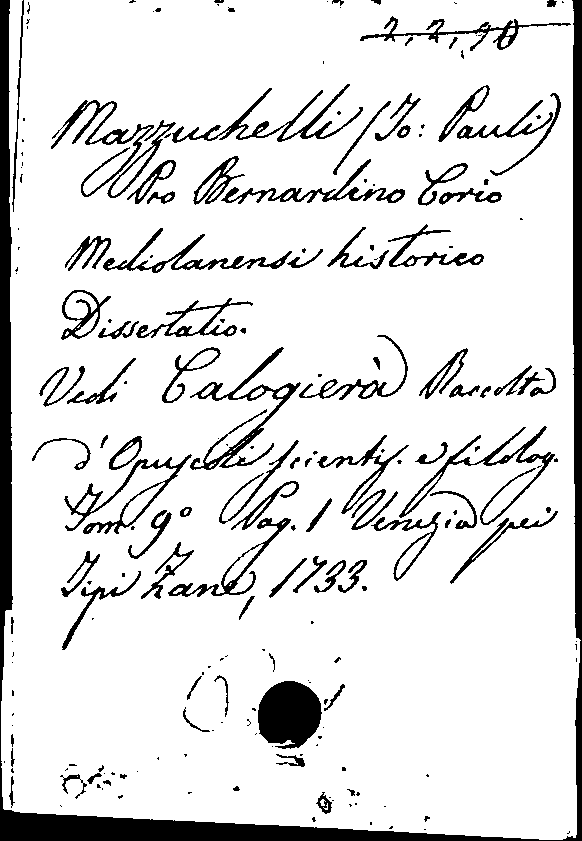 2,2,90
Mazzuchelli (Jo: Pauli)
Pro Bernardino Corio
Mediolanensi historico
Dissertatio.
Vedi Calogierà Raccolta
d'Opuscoli scientif. e filolog.
Tom. 9º Pag. 1 Venezia pei
Tipi Zane, 1733.